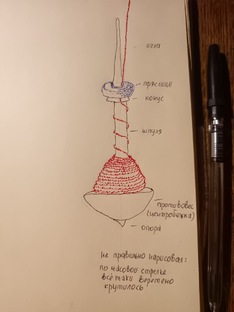 пряслице
конус
шпуля
противовес
(центробежка)
опора
не правильно нарисовал:
по часовой стрелке
всё таки веретено
крутилось